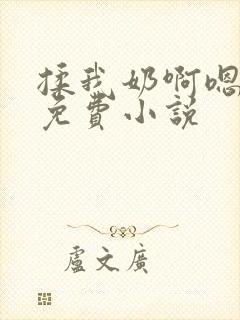 揉我奶啊嗯
免费小說
盧文廣